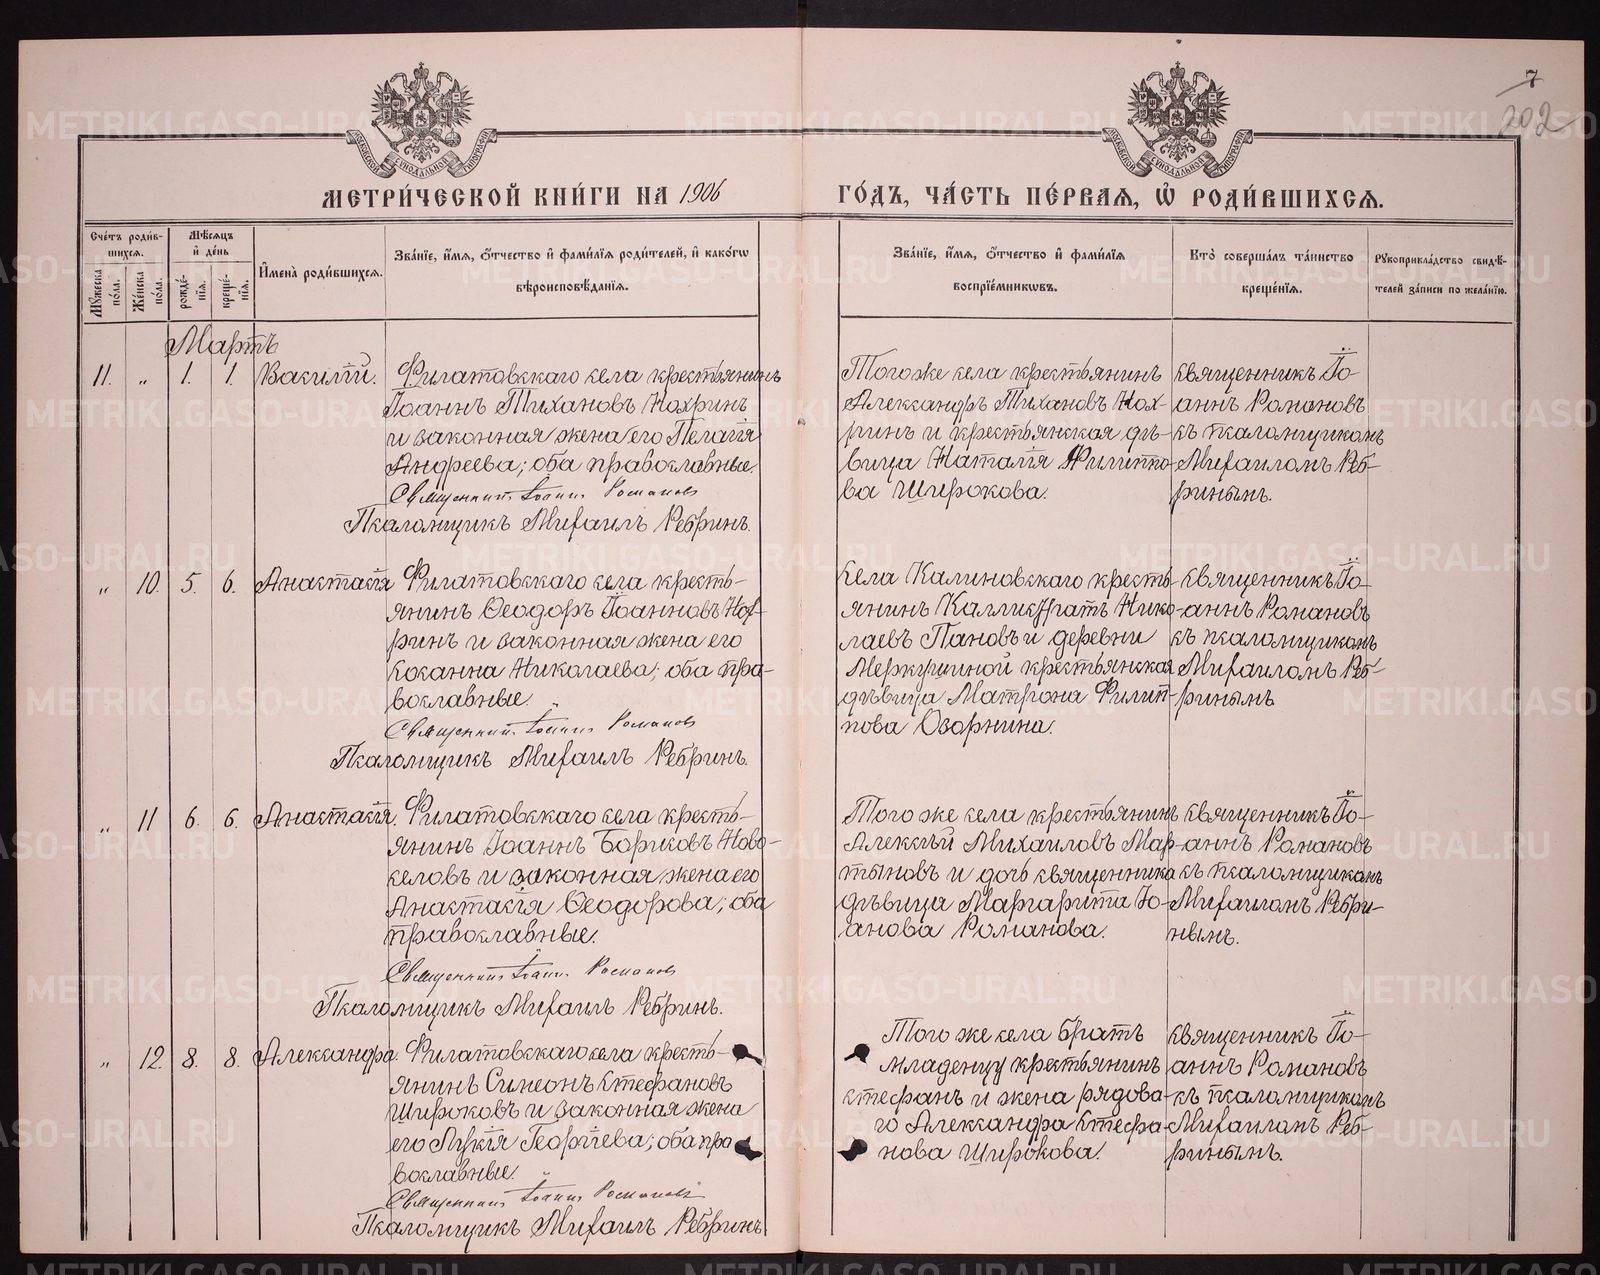 7
202
МЕТРИ́ЧЕСКОЙ КНИ́ГИ НА 1906
ГО́ДЪ, ЧА́СТЬ ПЕ́РВАЯ, Ѡ҆ РОДИ́ВШИХСЯ.
Сче́тъ роди́в-
шихся.
Мꙋ́жеска по́ла.
Же́нска по́ла.
Мѣ́сяцъ
и҆ де́нь
рожде́-
нїя.
креще́-
нїя.
И҆мена̀ роди́вшихся.
Зва́нїе, и҆́мя, ѻ҆́тчество и҆ фами́лїя роди́телей, и҆ како́гѡ
вѣроисповѣ́данїя.
Зва́нїе, и҆́мя, ѻ҆́тчество и҆ фами́лїя
воспрїе́мникѡвъ.
Кто̀ соверша́лъ та́инство
креще́нїя.
Рꙋкоприкла́дство свидѣ́-
телей за́писи по жела́нїю.
Мартъ
11. „ 1. 1. Василій.
Филатовскаго села крестьянинъ
Іоаннъ Тихановъ Кохринъ
и законная жена его Пелагія
Андреева; оба православные.
Священникъ Іоаннъ Романовъ
Псаломщикъ Михаилъ Ребринъ.
Того же села крестьянинъ
Александръ Тихановъ Кох-
ринъ и крестьянская дѣ-
вица Наталія Филиппо-
ва Широкова.
Священникъ Іо-
аннъ Романовъ
съ псаломщикомъ
Михаиломъ Реб-
ринымъ.
„ 10. 5. 6. Анастасія
Филатовскаго села кресть-
янинъ Ѳеодоръ Іоанновъ Кох-
ринъ и законная жена его
Сосанна Николаева; оба пра-
вославные.
Священникъ Іоаннъ Романовъ
Псаломщикъ Михаилъ Ребринъ.
Села Калиновскаго кресть-
янинъ Каллистратъ Нико-
лаевъ Пановъ и деревни
Меркушиной крестьянская
дѣвица Матрона Филип-
пова Озорнина.
Священникъ Іо-
аннъ Романовъ
съ псаломщикомъ
Михаиломъ Реб-
ринымъ
„ 11 6. 6. Анастасія.
Филатовскаго села кресть-
янинъ Іоаннъ Борисовъ Ново-
селовъ и законная жена его
Анастасія Ѳеодорова; оба
православные.
Священникъ Іоаннъ Романовъ
Псаломщикъ Михаилъ Ребринъ.
Того же села крестьянинъ
Алексѣй Михаиловъ Мар-
тыновъ и дочь священника
дѣвица Маргарита Іо-
анова Романова.
Священникъ Іо-
аннъ Романовъ
съ псаломщикомъ
Михаиломъ Ребри-
нымъ.
„ 12. 8. 8. Александра.
Филатовскаго села кресть-
янинъ Симеонъ Стефановъ
Широковъ и законная жена
его Лукія Георгіева; оба пра
вославные.
Священникъ Іоаннъ Романовъ
Псаломщикъ Михаилъ Ребринъ.
Того же села братъ
младенцу крестьянинъ
Стефанъ и жена рядова-
го Александра Стефа-
нова Широкова.
Священникъ Іо-
аннъ Романовъ
съ псаломщикомъ
Михаиломъ Реб-
ринымъ.
METRIKI.GASO-URAL.RU